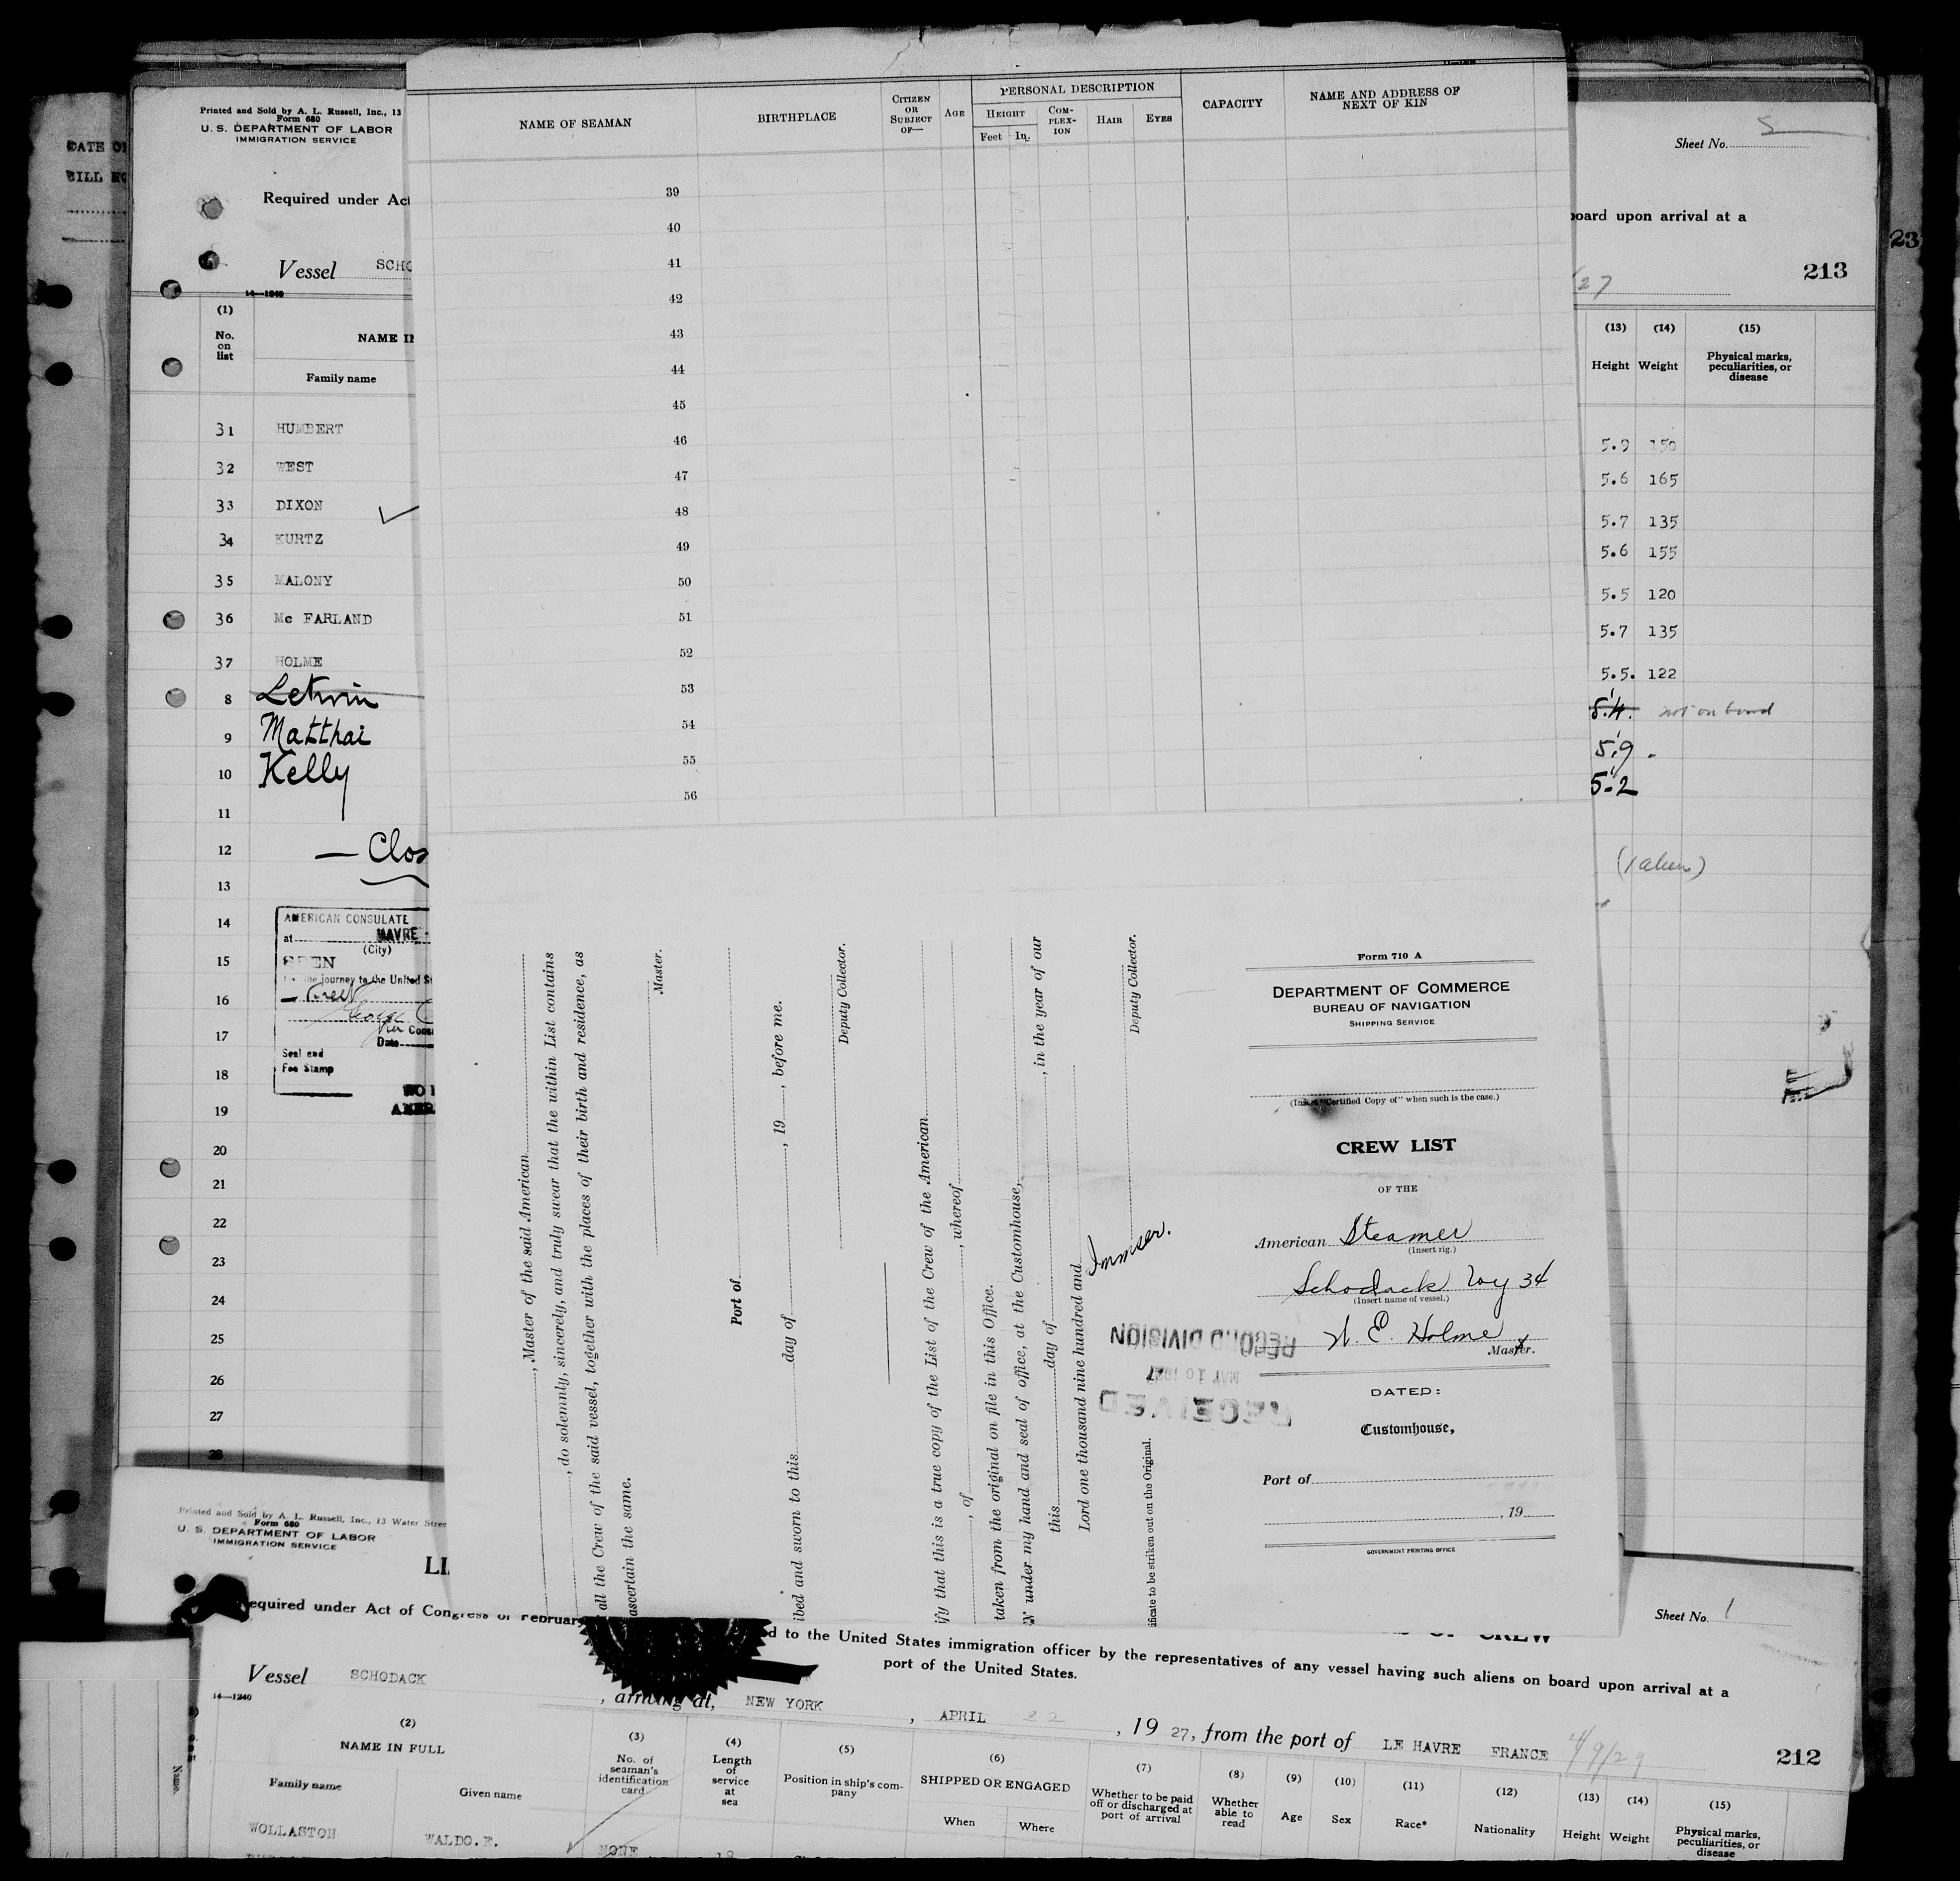 DATE OF
BILL NO
Printed and Sold by A. L. Russell, Inc., 13
Form 680
U. S. DEPARTMENT OF LABOR
IMMIGRATION SERVICE
Required under Act
Vessel SCHO
14—1240
(1)
No. on list
NAME IN
Family name
31 HUMBERT
32 WEST
33 DIXON
34 KURTZ
35 MALONY
36 Mc FARLAND
37 HOLME
8 Letwin
9 Matthai
10 Kelly
11
12 — Clos
13
14
15
16
17
18
19
20
21
22
23
24
25
26
27
28
AMERICAN CONSULATE
at HAVRE
(City)
SEEN
the journey to the United St
George
Vice Cons
Date
Seal and
Fee Stamp
NO
AMER
NAME OF SEAMAN
BIRTHPLACE
CITIZEN OR SUBJECT OF—
AGE
PERSONAL DESCRIPTION
HEIGHT
Feet In.
COM-PLEX-ION
HAIR
EYES
CAPACITY
NAME AND ADDRESS OF NEXT OF KIN
39
40
41
42
43
44
45
46
47
48
49
50
51
52
53
54
55
56
Sheet No.
board upon arrival at a
27
213
23
(13) (14) (15)
Height Weight Physical marks, peculiarities, or disease
5.9 150
5.6 165
5.7 135
5.6 155
5.5 120
5.7 135
5.5. 122
5'.4. not on board
5'.9 -
5'.2
(1 alien)
, Master of the said American
, do solemnly, sincerely, and truly swear that the within List contains
all the Crew of the said vessel, together with the places of their birth and residence, as
ascertain the same.
Master.
Port of
ibed and sworn to this day of , 19 , before me.
Deputy Collector.
ify that this is a true copy of the List of the Crew of the American
, of , whereof
taken from the original on file in this Office.
under my hand and seal of office, at the Customhouse,
this day of , in the year of our
Lord one thousand nine hundred and
Deputy Collector.
ificate to be striken out on the Original.
RECEIVED
MAY 10 1927
RECORD DIVISION
Form 710 A
DEPARTMENT OF COMMERCE
BUREAU OF NAVIGATION
SHIPPING SERVICE
(Insert "Certified Copy of" when such is the case.)
CREW LIST
OF THE
American Steamer
(Insert rig.)
Schodack Voy 34
(Insert name of vessel.)
W. E. Holme
Master.
DATED:
Customhouse,
Port of
, 19
GOVERNMENT PRINTING OFFICE
Printed and Sold by A. L. Russell, Inc., 13 Water Stree
Form 680
U. S. DEPARTMENT OF LABOR
IMMIGRATION SERVICE
LI
OF CREW
Sheet No. 1
equired under Act of Congress of February
d to the United States immigration officer by the representatives of any vessel having such aliens on board upon arrival at a
port of the United States.
Vessel SCHODACK , arriving at, NEW YORK , APRIL 22 , 19 27, from the port of LE HAVRE FRANCE
14—1240
212
(2) NAME IN FULL
Family name Given name
(3) No. of seaman's identification card
(4) Length of service at sea
(5) Position in ship's company
(6) SHIPPED OR ENGAGED
When Where
(7) Whether to be paid off or discharged at port of arrival
(8) Whether able to read
(9) Age
(10) Sex
(11) Race*
(12) Nationality
(13) Height
(14) Weight
(15) Physical marks, peculiarities, or disease
WOLLASTON WALDO.E. NONE
Name.